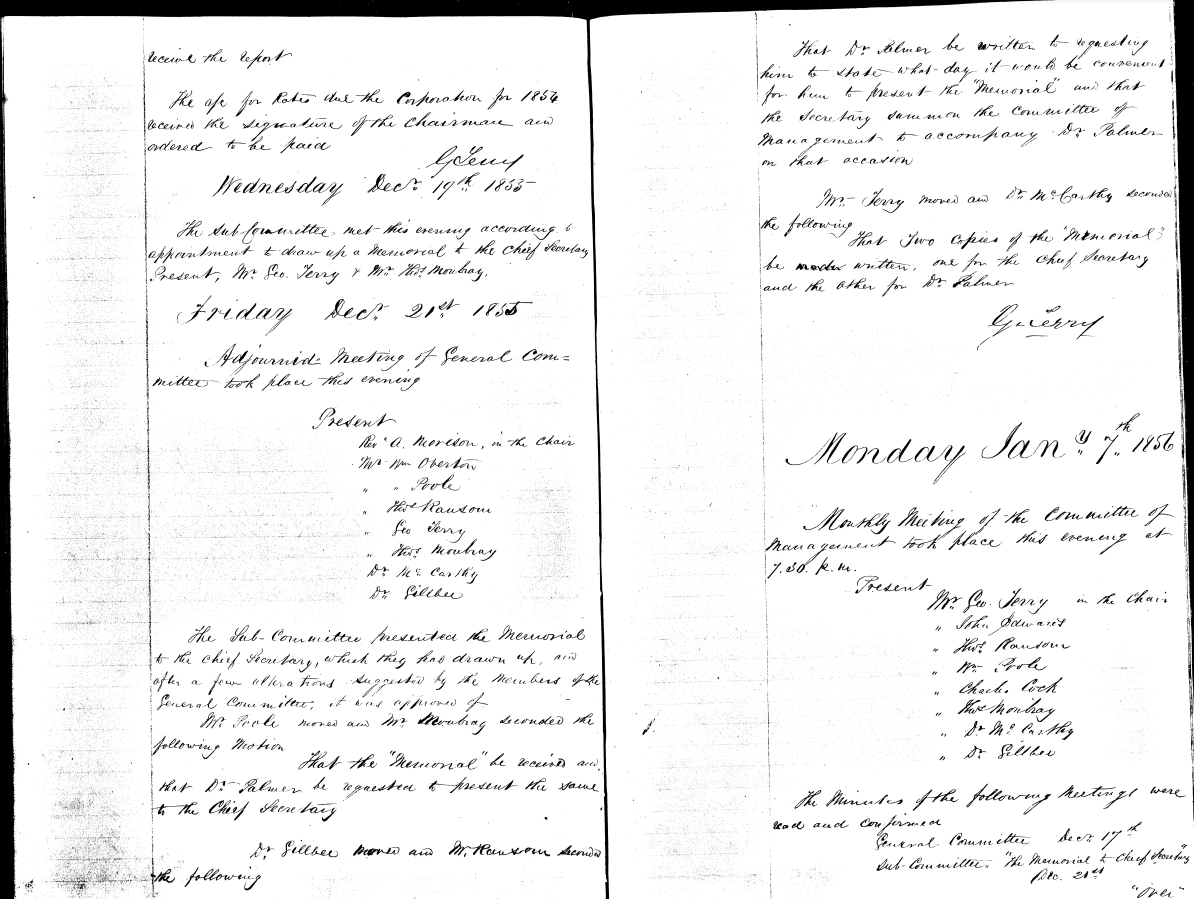 receive the report
The a/c for Rates due the Corporation for 1854
received the signature of the Chairman and
ordered to be paid
G Terry
Wednesday Decr. 19th. 1855
The sub-Committee met this evening according to
appointment to draw up a Memorial to the Chief Secretary
Present, Mr. Geo. Terry & Mr. Thos Moubray.
Friday Decr. 21st 1855
Adjourned Meeting of General Com=
mittee took place this evening
Present
Revd A. Morison, in the Chair
Mr. Wm Overton
" " Poole
" Thos Ransom
" Geo Terry
" Thos. Moubray
Dr. Mc. Carthy
Dr. Gillbee
The Sub-Committee presented the Memorial
to the Chief Secretary, which they had drawn up, and
after a few alterations suggested by the Members of the
General Committee, it was approved of
Mr. Poole moved and Mr. Moubray seconded the
following Motion
That the "Memorial" be received and
that Dr. Palmer be requested to present the same
to the Chief Secretary
Dr. Gillbee moved and Mr. Ransom seconded
the following
That Dr. Palmer be written to requesting
him to state what day it would be convenient
for him to present the "Memorial" and that
the Secretary summon the Committee of
Management to accompany Dr. Palmer
on that occasion
Mr. Terry moved and Dr. McCarthy seconded
the following
That Two Copies of the "Memorial"
be written, one for the Chief Secretary
and the other for Dr. Palmer
G Terry
Monday Jany. 7th. 1856
Monthly Meeting of the Committee of
Management took place this evening at
7.30. p.m.
Present
Mr. Geo. Terry in the Chair
" John Edwards
" Thos. Ransom
" Wm. Poole
" Charles Cock
" Thos Moubray
" Dr. Mc Carthy
" Dr. Gillbee
The Minutes of the following Meetings were
read and confirmed
General Committee Decr. 17th
Sub-Committee. "the Memorial to Chief Secretary"
Dec. 21st
"Over"